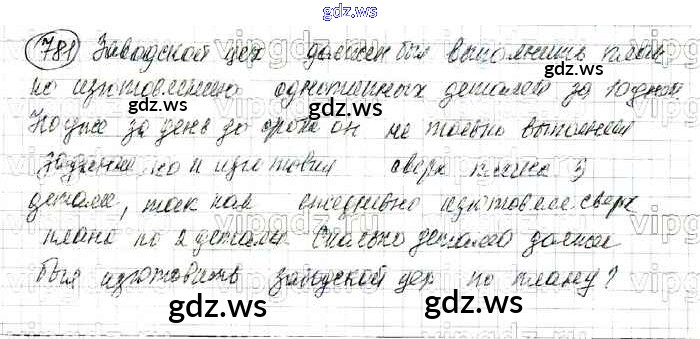 gdz.ws
781 Заводской цех должен был выполнить план
по изготовлению однотипных деталей за 10 дней
Но уже за день до срока он не только выполнил
задание но и изготовил сверх плана 3
детали, так как ежедневно изготовлял сверх
плана по 2 детали. Сколько деталей должен
был изготовить заводской цех по плану?
gdz.ws